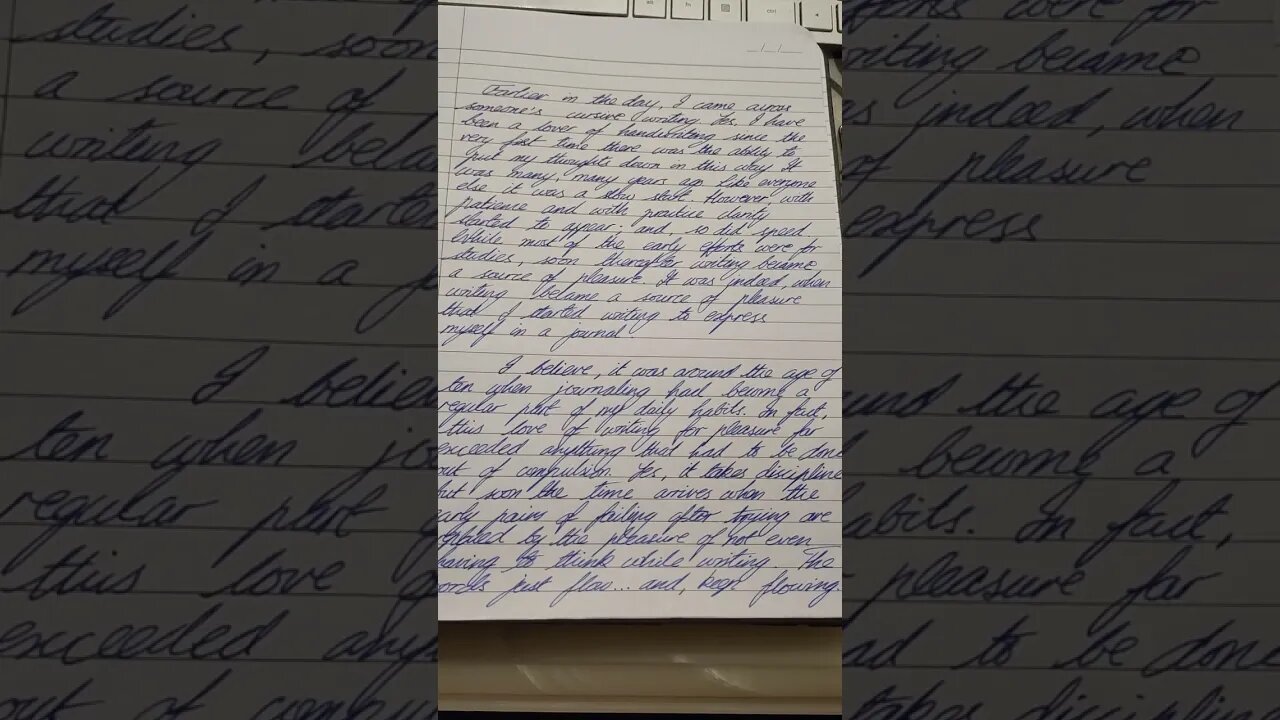 Earlier in the day, I came across
someone's cursive writing. Yes, I have
been a lover of handwriting since the
very first time there was the ability to
put my thoughts down in this way. It
was many, many years ago. Like everyone
else it was a slow start. However, with
patience and with practice clarity
started to appear; and, so did speed.
While most of the early efforts were for
studies, soon thereafter writing became
a source of pleasure. It was indeed, when
writing became a source of pleasure
that I started writing to express
myself in a journal.
I believe, it was around the age of
ten when journaling had become a
regular part of my daily habits. In fact,
this love of writing for pleasure far
exceeded anything that had to be done
out of compulsion. Yes, it takes discipline
but soon the time arrives when the
early pains of failing after trying are
by the pleasure of not even
having to think while writing. The
words just flow... and, keep flowing.